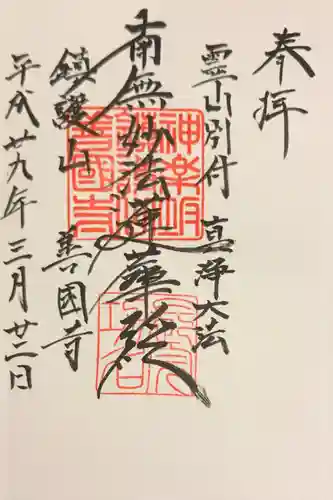 奉拝
霊山別付 真浄大法
南無妙法蓮華経
鎮護山 善國寺
平成廿九年三月廿二日
神楽坂
善國寺